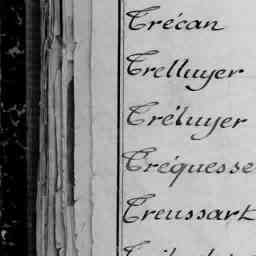 Trécan
Trelluyer
Tréluyer
Tréquesse
Treussart